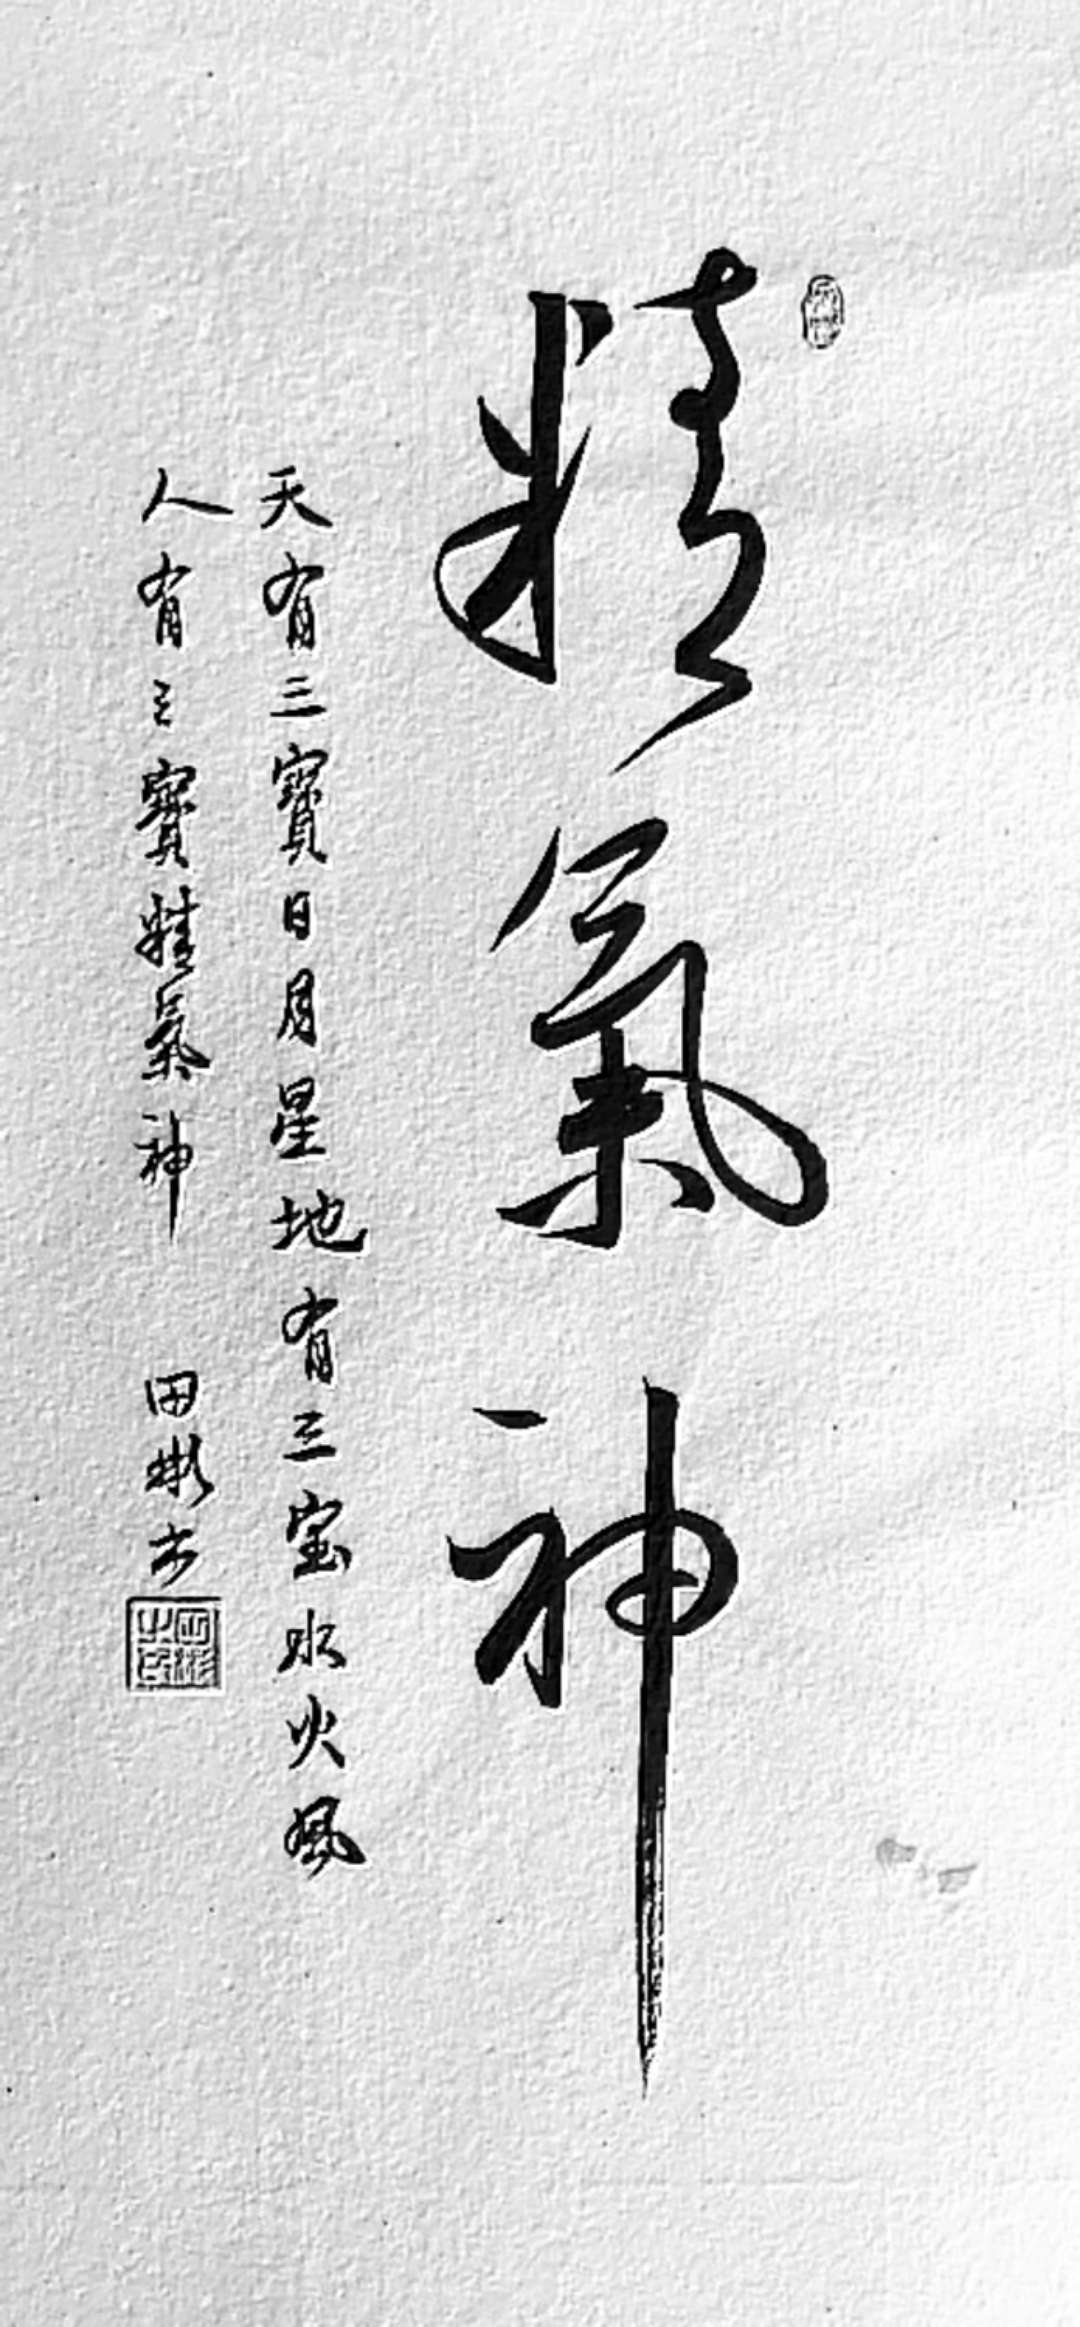 精氣神
天有三寶日月星地有三宝水火風
人有三寶精氣神 田彬书